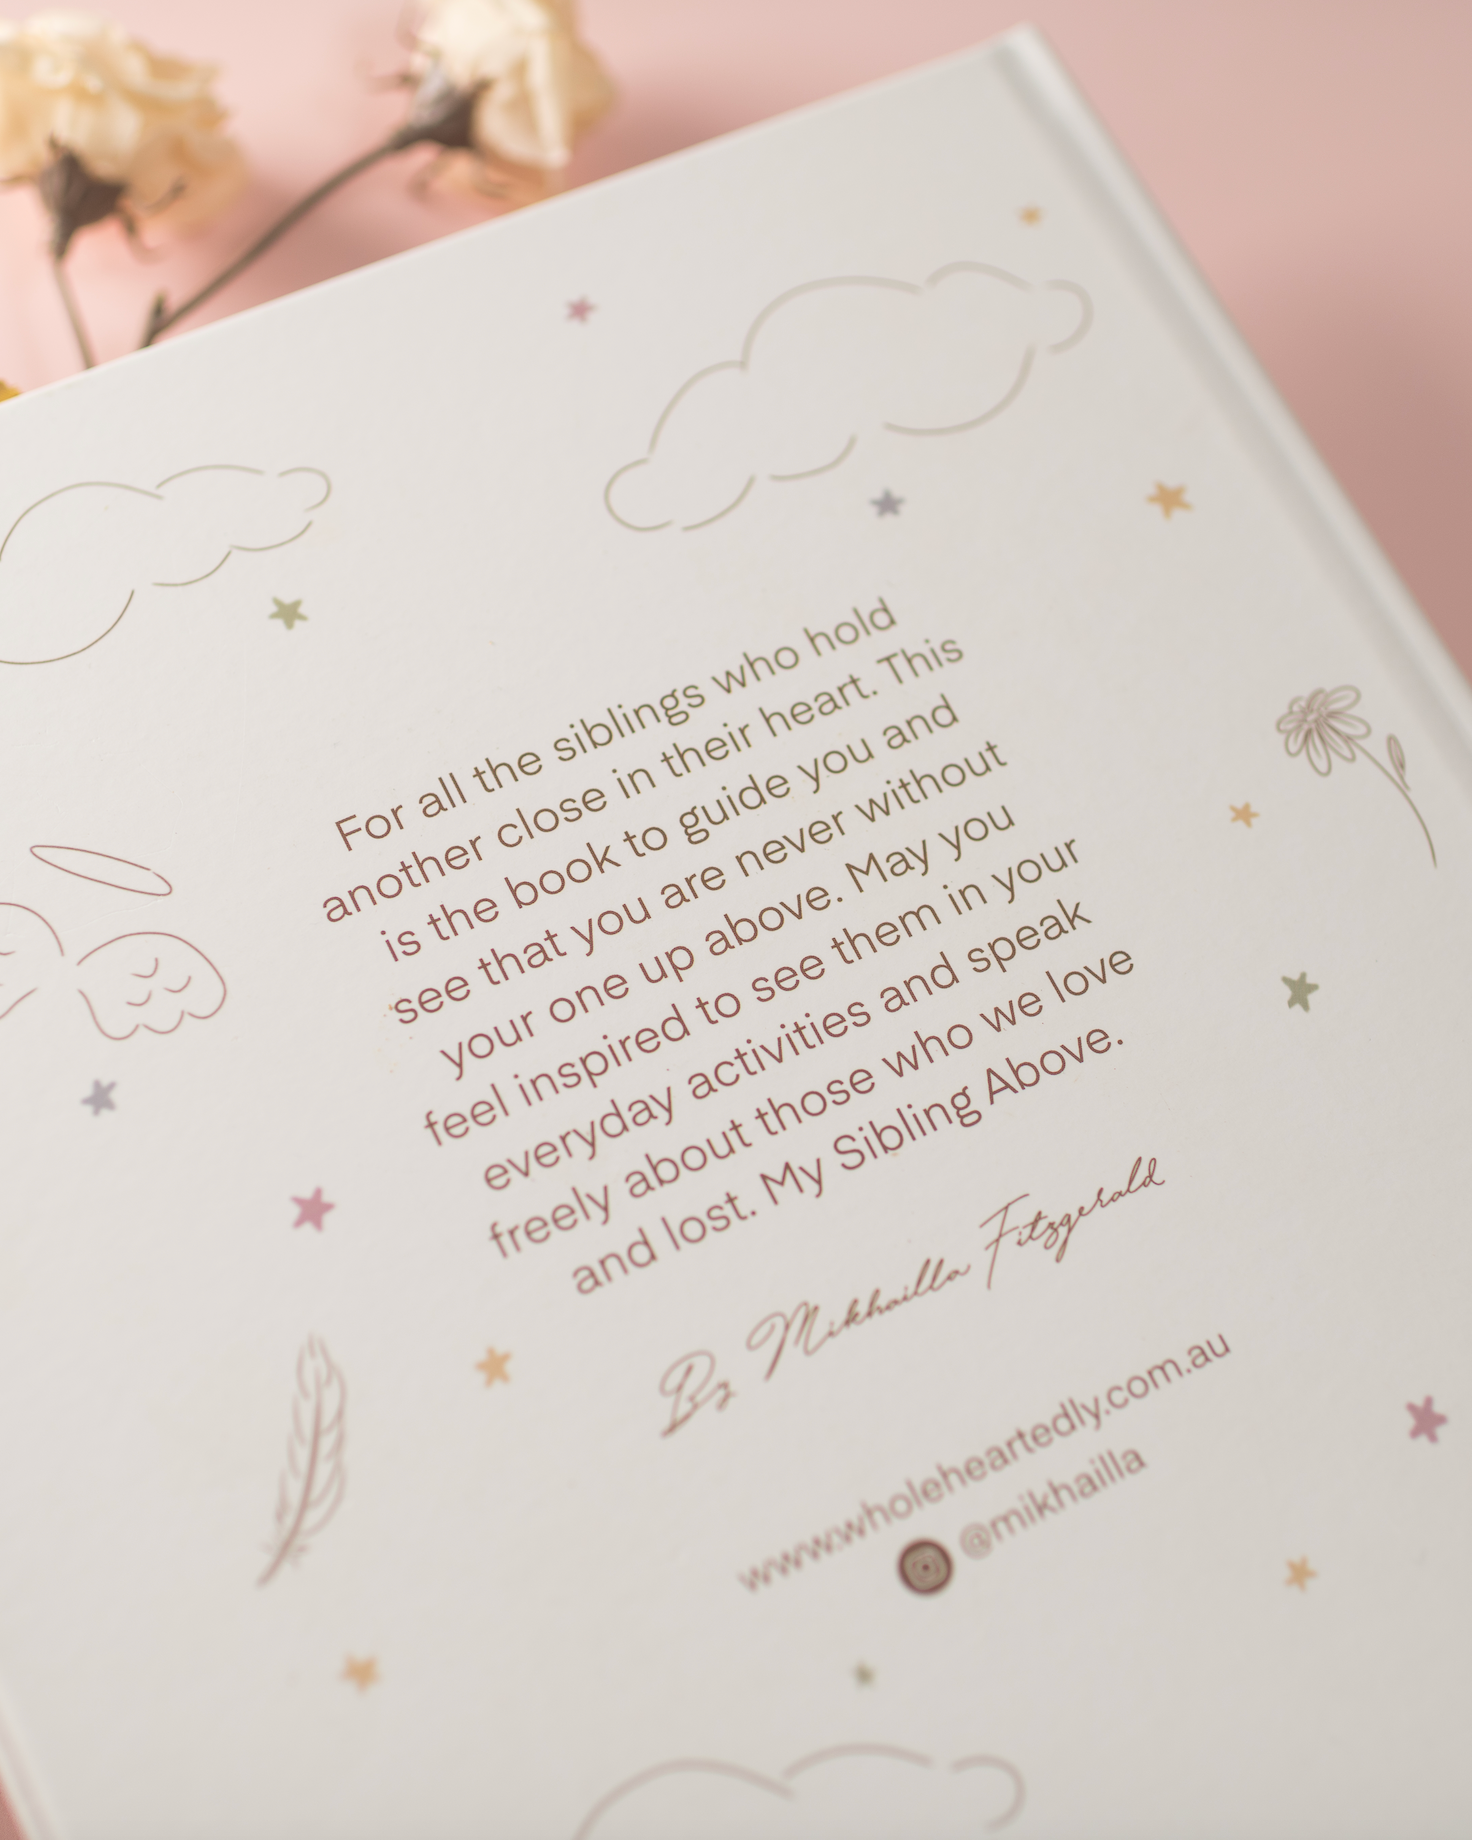 For all the siblings who hold
another close in their heart. This
is the book to guide you and
see that you are never without
your one up above. May you
feel inspired to see them in your
everyday activities and speak
freely about those who we love
and lost. My Sibling Above.
By Mikhailla Fitzgerald
www.wholeheartedly.com.au
@mikhailla